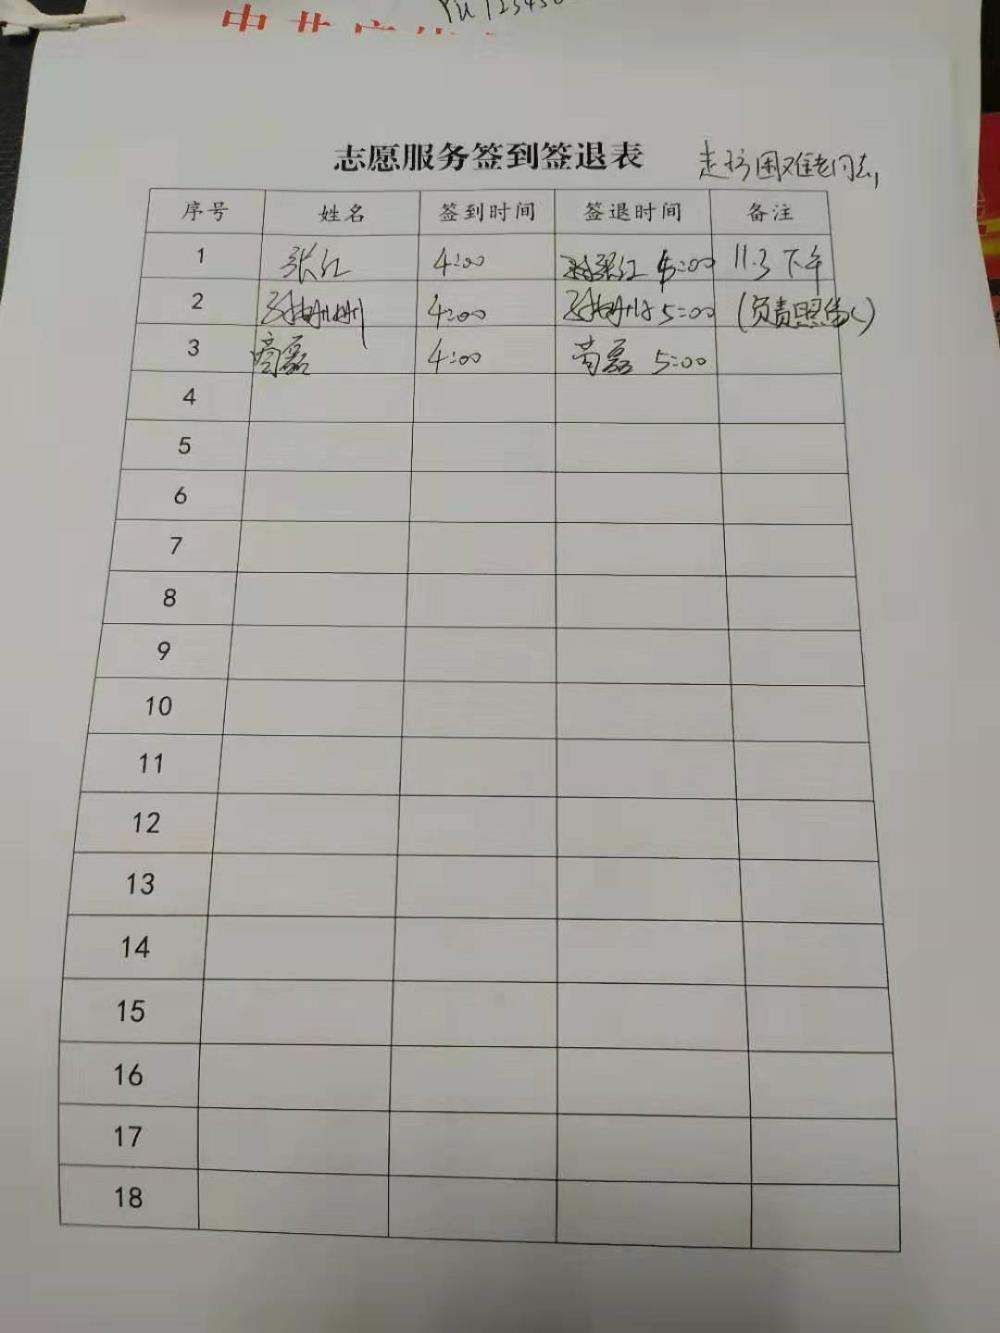 志愿服务签到签退表 走访困难老同志
序号 姓名 签到时间 签退时间 备注
1 张红 4:00 张红 5:00 11.3 下午
2 4:00 5:00 (负责照像)
3 苟磊 4:00 苟磊 5:00
4
5
6
7
8
9
10
11
12
13
14
15
16
17
18